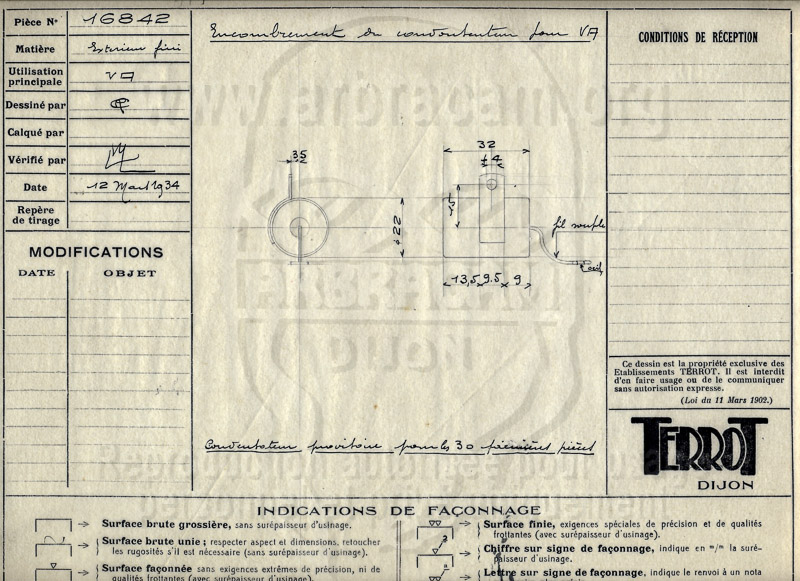 Pièce N° 16842
Matière Exterieur fini
Utilisation principale VA
Dessiné par
Calqué par
Vérifié par
Date 12 Mars 1934
Repère de tirage
MODIFICATIONS
DATE OBJET
Encombrement du condensateur pour VA
35
32
4
ø 22
fil souple
13,5 9.5 9
Condensateur provisoire pour les 30 premières pièces
CONDITIONS DE RÉCEPTION
Ce dessin est la propriété exclusive des
Etablissements TERROT. Il est interdit
d'en faire usage ou de le communiquer
sans autorisation expresse.
(Loi du 11 Mars 1902.)
TERROT
DIJON
INDICATIONS DE FAÇONNAGE
Surface brute grossière, sans surépaisseur d'usinage.
Surface brute unie ; respecter aspect et dimensions, retoucher
les rugosités s'il est nécessaire (sans surépaisseur d'usinage).
Surface façonnée sans exigences extrêmes de précision, ni de
qualités frottantes (avec surépaisseur d'usinage).
Surface finie, exigences spéciales de précision et de qualités
frottantes (avec surépaisseur d'usinage).
Chiffre sur signe de façonnage, indique en m/m la suré-
paisseur d'usinage.
Lettre sur signe de façonnage, indique le renvoi à un nota
www.arbracam.org